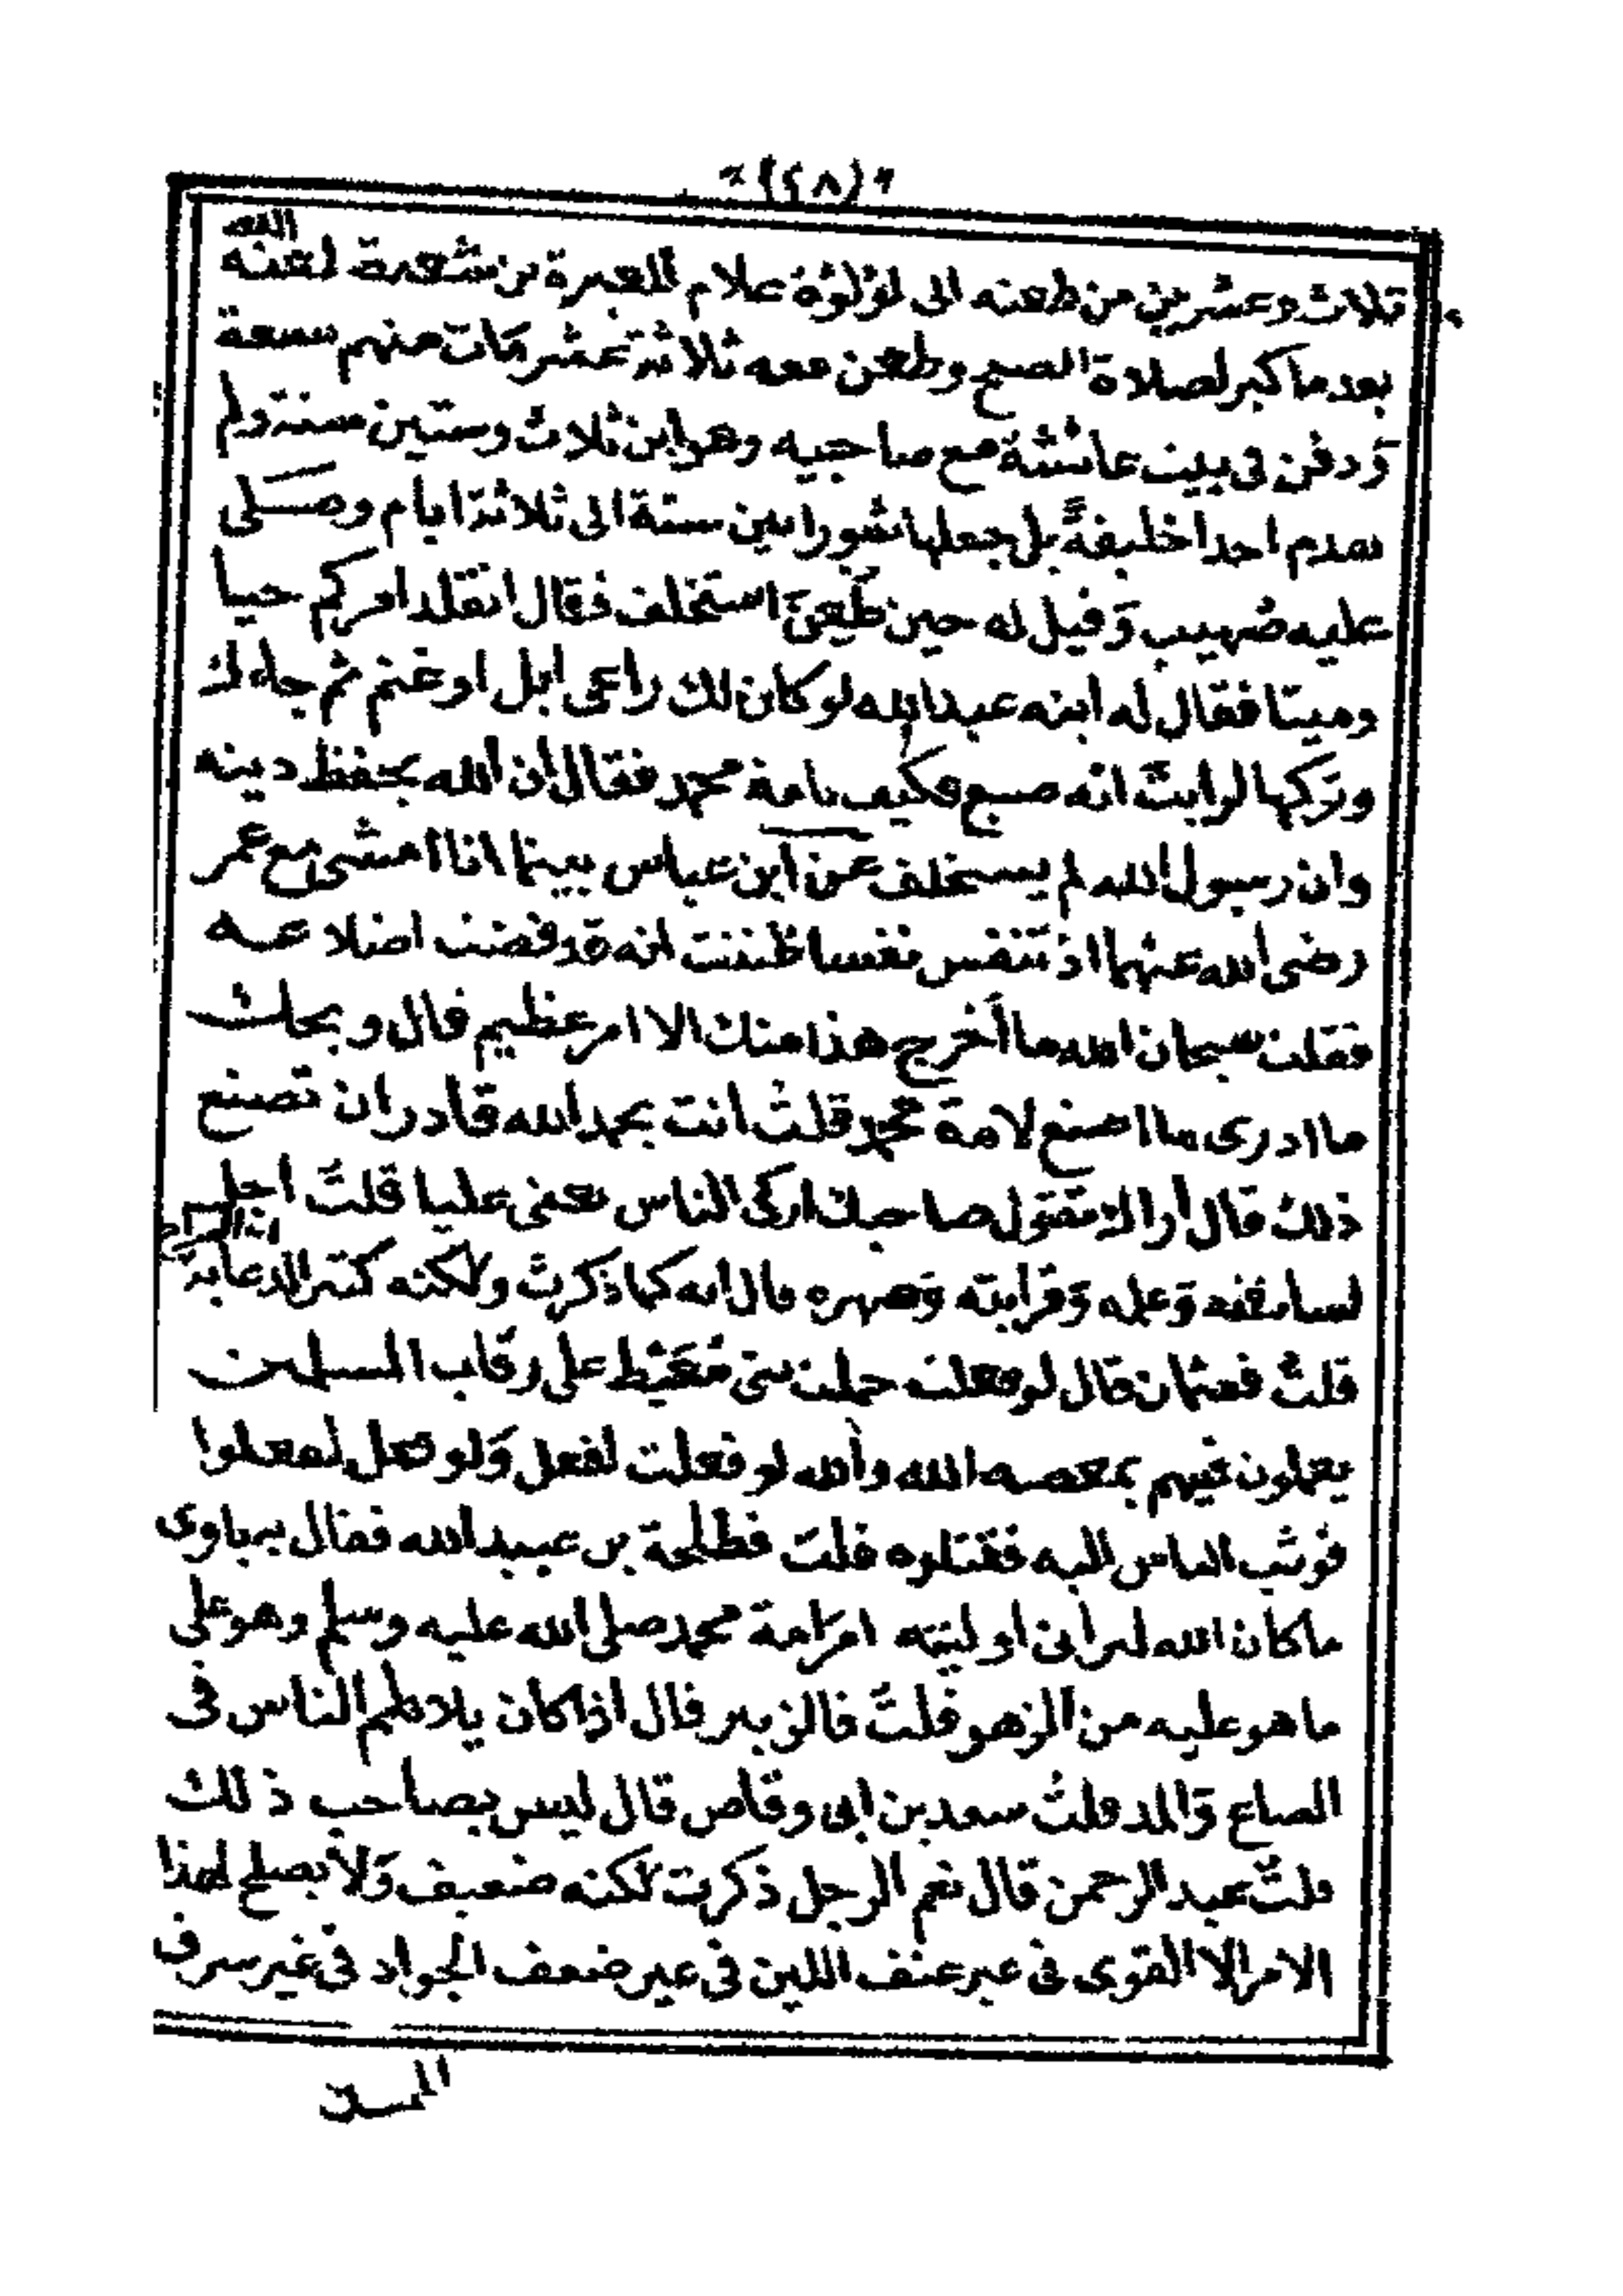 (٤٨)
ثلاث وعشرين من طعنه ابى لؤلؤة غلام المغيرة بن شعبة لعنه الله
بعد ما كبر لصلاة الصبح وطعن معه ثلاثة عشر مات منهم سبعة
وَدفن فى بيت عائشة مع صاحبيه وهو ابن ثلاث وستين سنة ولم
يقدم احدا خليفةً بل جعلها شورا بين ستة الى ثلاثة ايام وصلى
عليه صُهيب وَقيل له حين طُعِنَ استخلف فقال اتقلد امركم حيا
وميتا فقال له ابنه عبدالله لو كان لك راعى ابل او غنم ثم جاءك
وتركها لرايت انه ضيع فكيف بامة محمد فقال ان الله يحفظ دينه
وان رسول الله لم يستخلف عن ابن عباس بينما انا امشى مع عمر
رضى الله عنهما اذ تنفس نفسا ظننت انه قد قضت اضلاعه
فقلت سبحان الله ما أخرج هذا منك الا امر عظيم قال ويحك
ما ادرى ما اصنع لامة محمد قلتُ انت بحمد الله قادر ان تصنع
ذلك قال أرا لا تقول صاحبك ازكى الناس يعنى عليا قلتُ اجل
لسابقته وَعلمه وَقرابته وَصهره قال انه كما ذكرت ولكنه كثير الدعابة
قلتُ فعثمان قال لو فعلت حملت بنى مُعَيْط على رقاب المسلمين
يعملون فيهم بمعصية الله والله لو فعلت لفعل وَلو فعل لفعلوا
فوثب الناس اليه فقتلوه قلت فطلحة بن عبيدالله فقال
ما كان الله ليرانى اوليته امر امة محمد صلى الله عليه وسلم وهو على
ما هو عليه من الزهو قلتُ فالزبير قال اذا كان يلاطم الناس فى
الصاع وَالمد قلتُ سعد بن ابى وقاص قال ليس بصاحب ذلك
قلتُ عبد الرحمن قال نعم الرجل ذكرت لكنه ضعيف وَلا يصلح لهذا
الامر الا القوى فى غير عنف اللين فى غير ضعف الجواد فى غير سرف